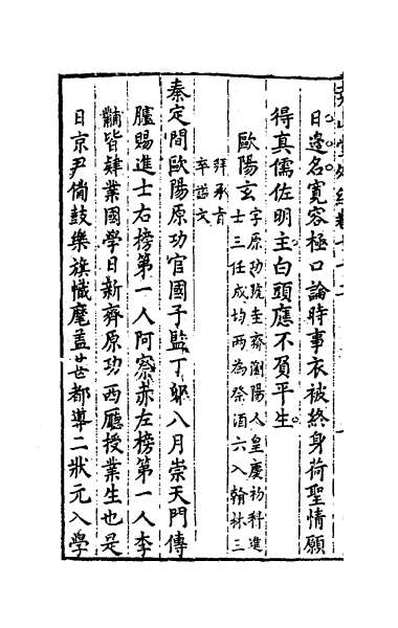 日邊名寬容極口論時事衣被終身荷聖情願
得真儒佐明主白頭應不負平生
歐陽玄字原功號圭齋瀏陽人皇慶初科進
士三任成均兩為祭酒六入翰林三
拜承旨
卒諡文
泰定間歐陽原功官國子監丁卯八月崇天門傳
臚賜進士右榜第一人阿察赤左榜第一人李
黼皆肄業國學日新齋原功西廳授業生也是
日京尹備鼓樂旗幟麾蓋甚都導二狀元入學